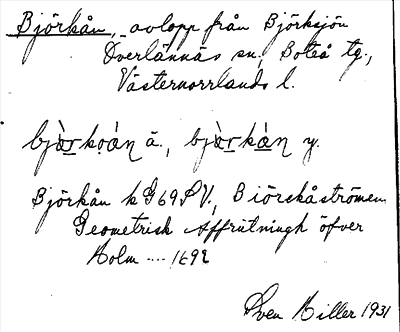 Björkån, avlopp från Björksjön
Överlännäs sn, Boteå tg.,
Västernorrlands l.
bjæ̀rkoán ä., bjæ̀rkán y.
Björkån k G69SV., Biörckåströmen
Geometrisk Affrittningh öfver
Holm .... 1692
Sven Hiller 1931